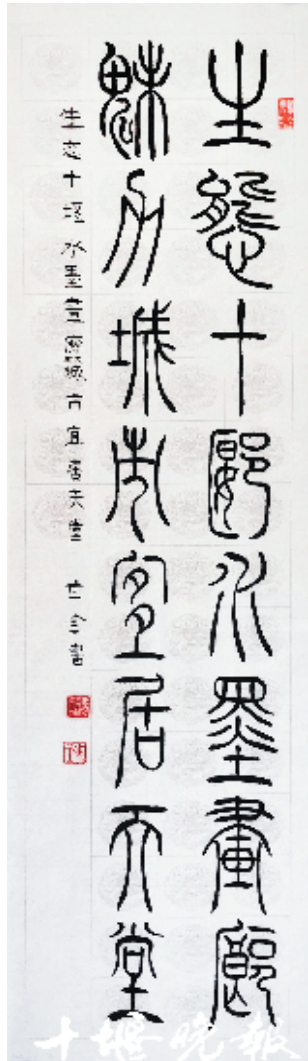 生態十郾水墨畫廊
魅力城市宜居天堂
生态十堰水墨畫廊
市宜居天堂
書
十堰晚報